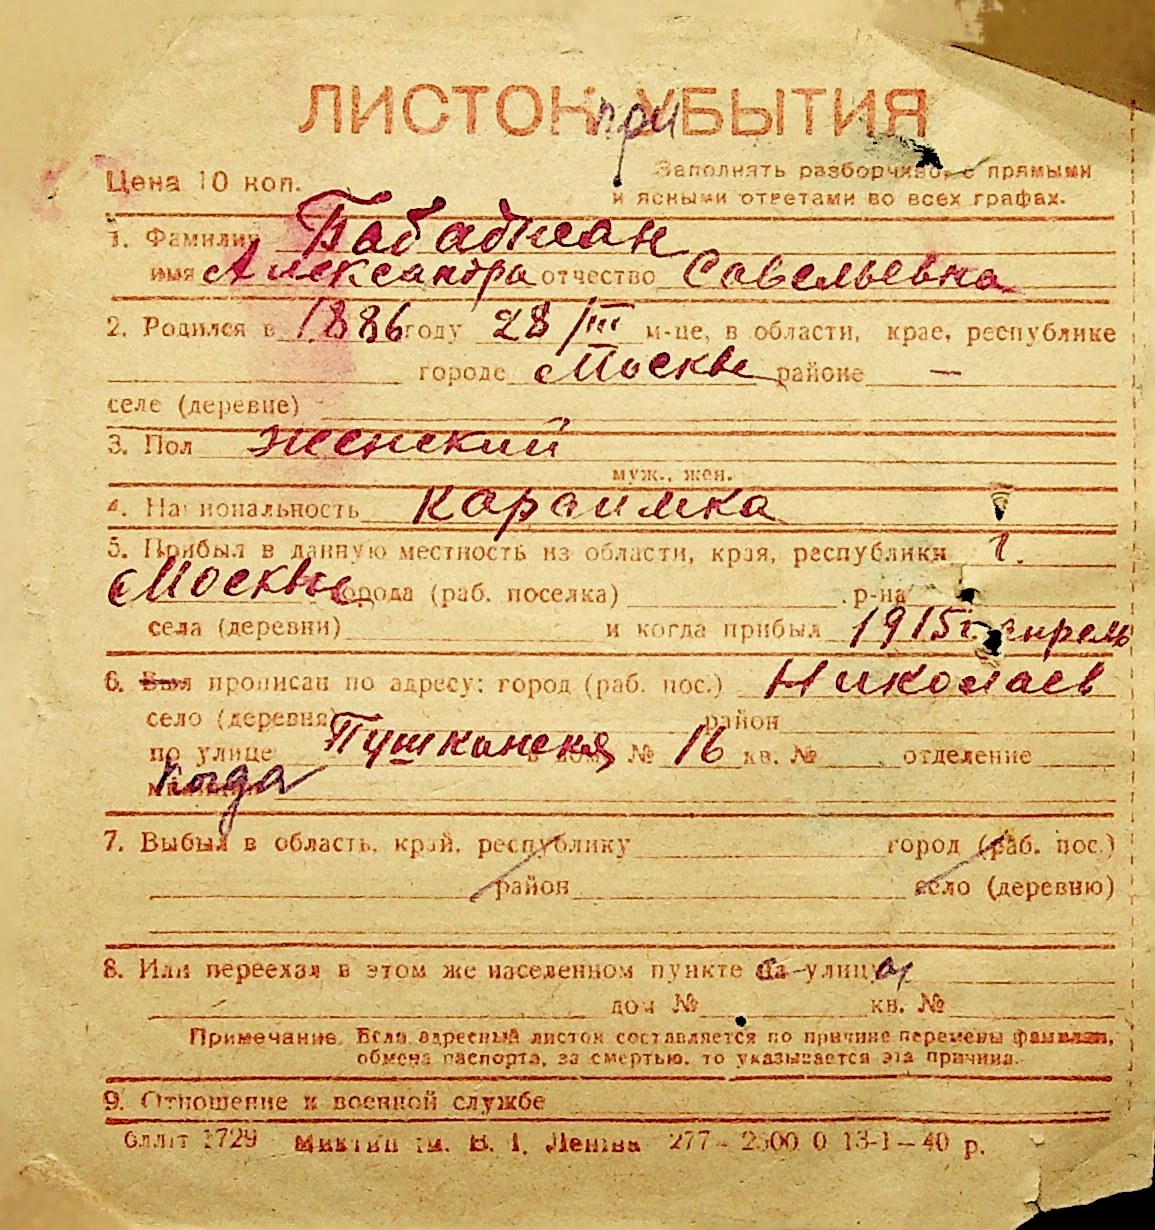 ЛИСТОК при УБЫТИЯ
Цена 10 коп.
Заполнять разборчиво, с прямыми
и ясными ответами во всех графах.
1. Фамилия Бабаджан
имя Александра отчество Савельевна
2. Родился в 1886 году 28/III м-це, в области, крае, республике
городе Москве районе —
селе (деревне)
3. Пол женский
муж., жен.
4. Национальность караимка
5. Прибыл в данную местность из области, края, республики г.
Москвы города (раб. поселка) р-на
села (деревни) и когда прибыл 1915 г. апрель
6. Был прописан по адресу: город (раб. пос.) Николаев
село (деревня) район
по улице Пушкинская в дом № 16 кв. № отделение
7. Выбыл в область, край, республику город (раб. пос.)
район село (деревню)
8. Или переехал в этом же населенном пункте с улицы
дом № кв. №
Примечание. Если адресный листок составляется по причине перемены фамилии,
обмена паспорта, за смертью, то указывается эта причина.
9. Отношение к военной службе
1729 ім. В. І. Леніна 277 – 2500 0 13-1 – 40 р.